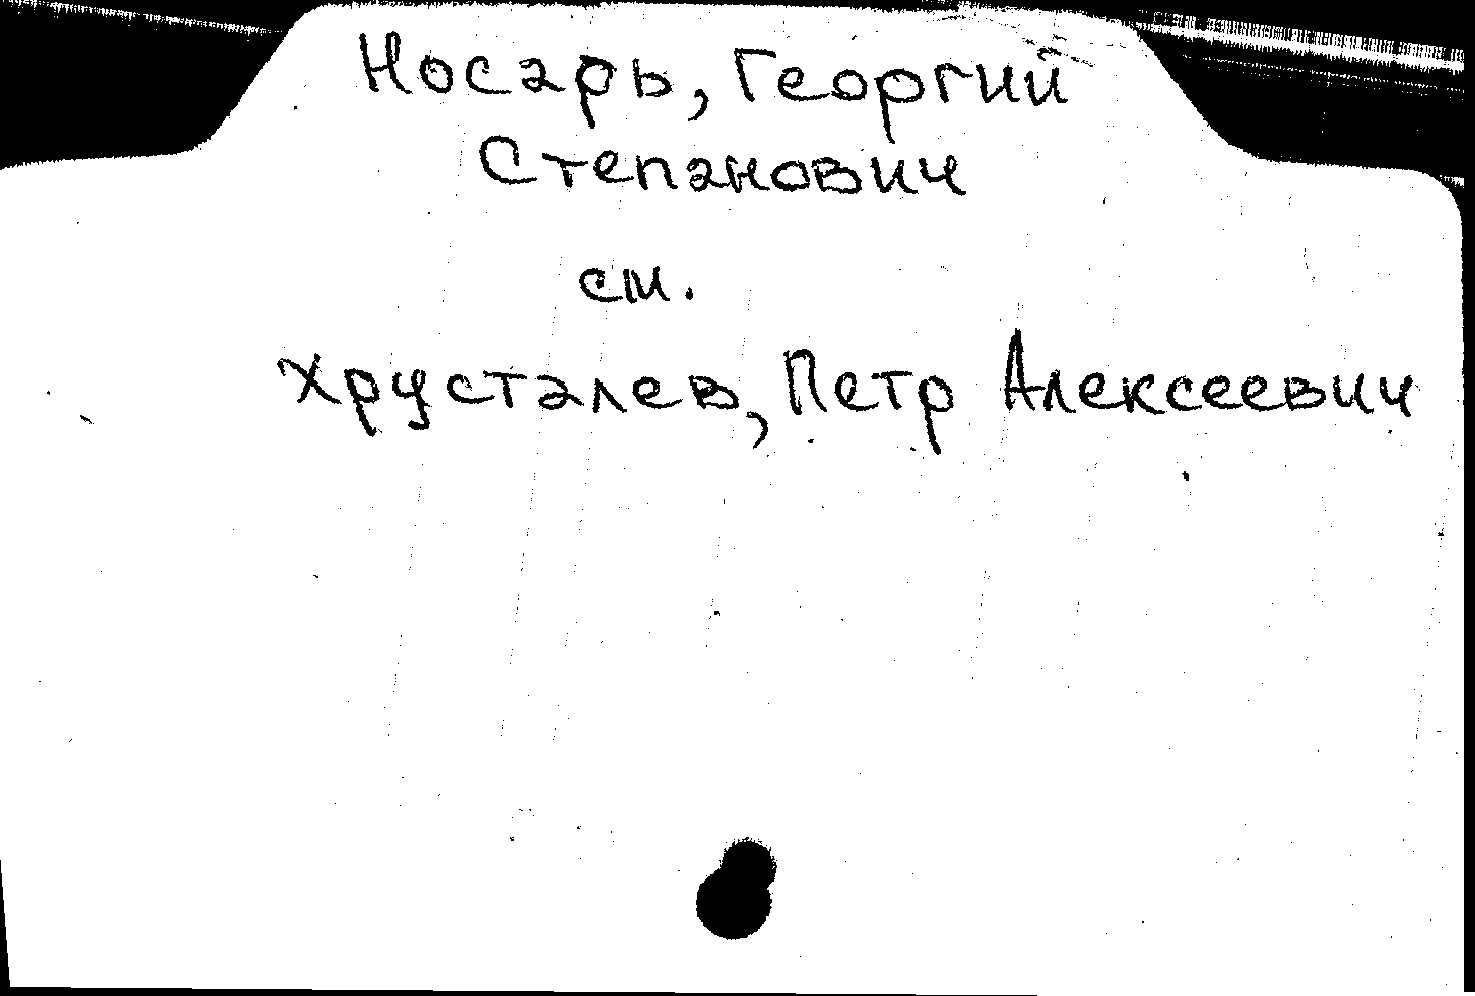 Носарь, Георгий
Степанович
см.
Хрусталев, Петр Алексеевич